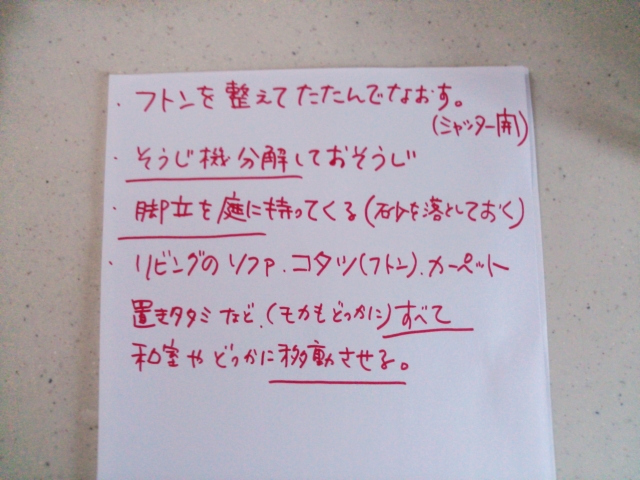 ・フトンを整えてたたんでなおす。
(シャッター開)
・そうじ機分解しておそうじ
・脚立を庭に持ってくる(砂を落としておく)
・リビングのソファ.コタツ(フトン).カーペット
置きタタミなど、(モカもどっかに)すべて
和室やどっかに移動させる。